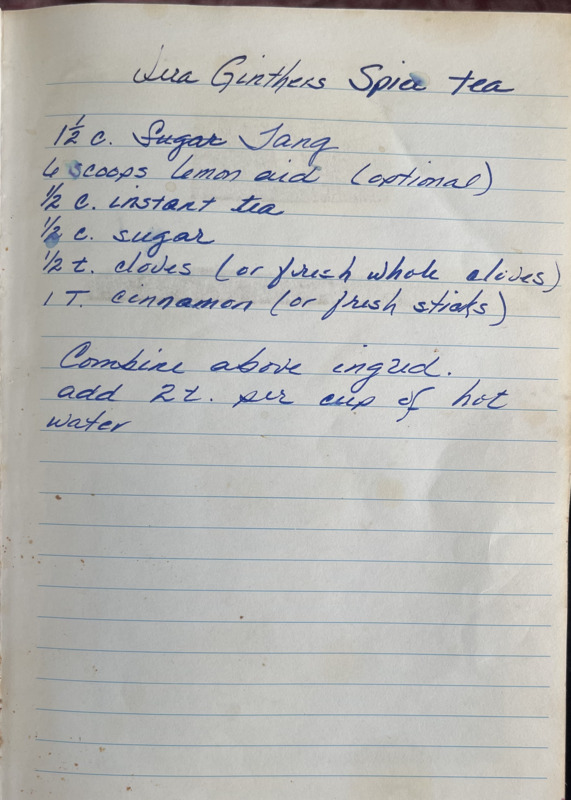 Ginthers Spice tea
1½ c. Sugar Tang
6 scoops lemon aid (optional)
½ c. instant tea
½ c. sugar
½ t. cloves (or fresh whole cloves)
1 T. cinnamon (or fresh sticks)
Combine above ingred.
add 2 t. per cup of hot
water